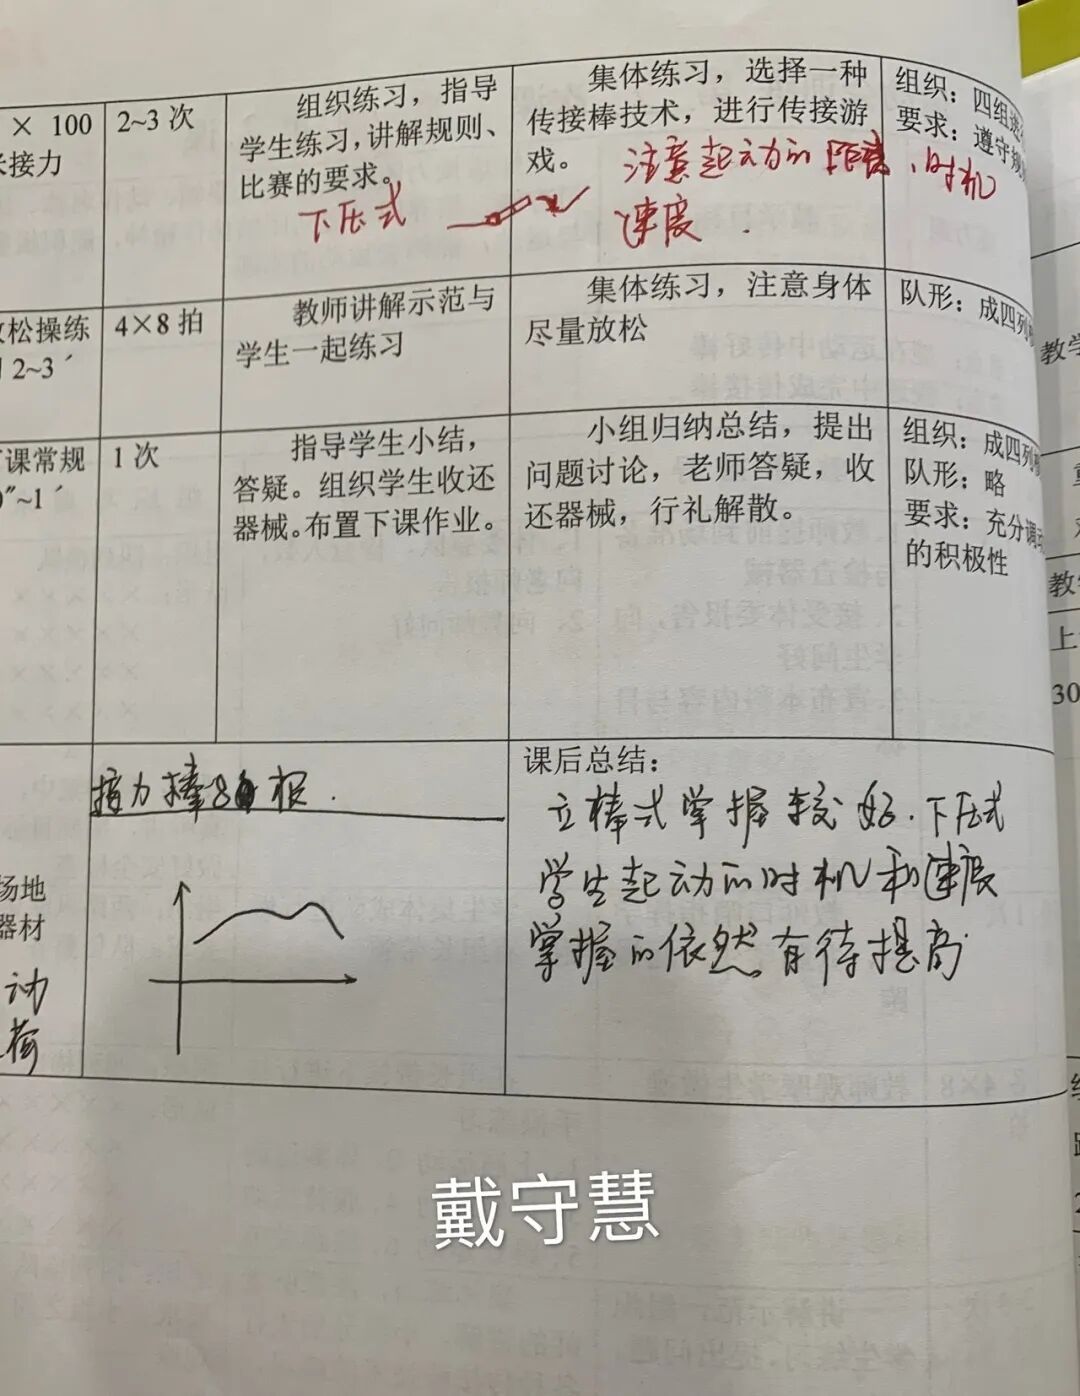 × 100
接力
2~3 次
组织练习，指导
学生练习，讲解规则、
比赛的要求。
下压式
集体练习，选择一种
传接棒技术，进行传接游
戏。
注意起动的距离、时机
速度.
组织：四组
要求：遵守规
松操练
2~3′
4×8 拍
教师讲解示范与
学生一起练习
集体练习，注意身体
尽量放松
队形：成四列
课常规
″~1′
1 次
指导学生小结，
答疑。组织学生收还
器械。布置下课作业。
小组归纳总结，提出
问题讨论，老师答疑，收
还器械，行礼解散。
组织：成四列
队形：略
要求：充分调动
的积极性
场地
器材
接力棒
动
荷
课后总结：
立棒式掌握较好.下压式
学生起动的时机和速度
掌握的依然有待提高.
教学
上
30
戴守慧